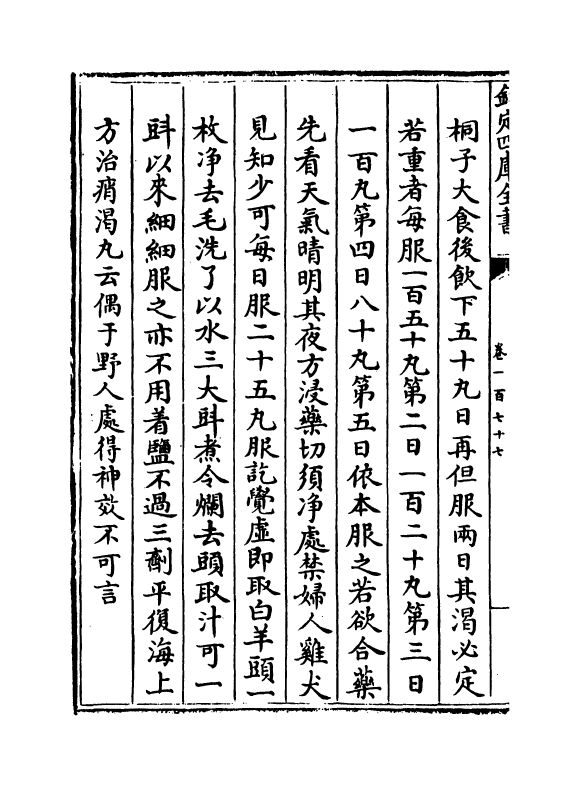 欽定四庫全書
卷一百七十七
桐子大食後飲下五十丸日再但服兩日其渴必定
若重者每服一百五十丸第二日一百二十丸第三日
一百丸第四日八十丸第五日依本服之若欲合藥
先看天氣晴明其夜方浸藥切須净處禁婦人雞犬
見知少可每日服二十五丸服訖覺虛即取白羊頭一
枚净去毛洗了以水三大㪷煮令爛去頭取汁可一
㪷以來細細服之亦不用着鹽不過三劑平復海上
方治痟渴丸云偶于野人處得神效不可言